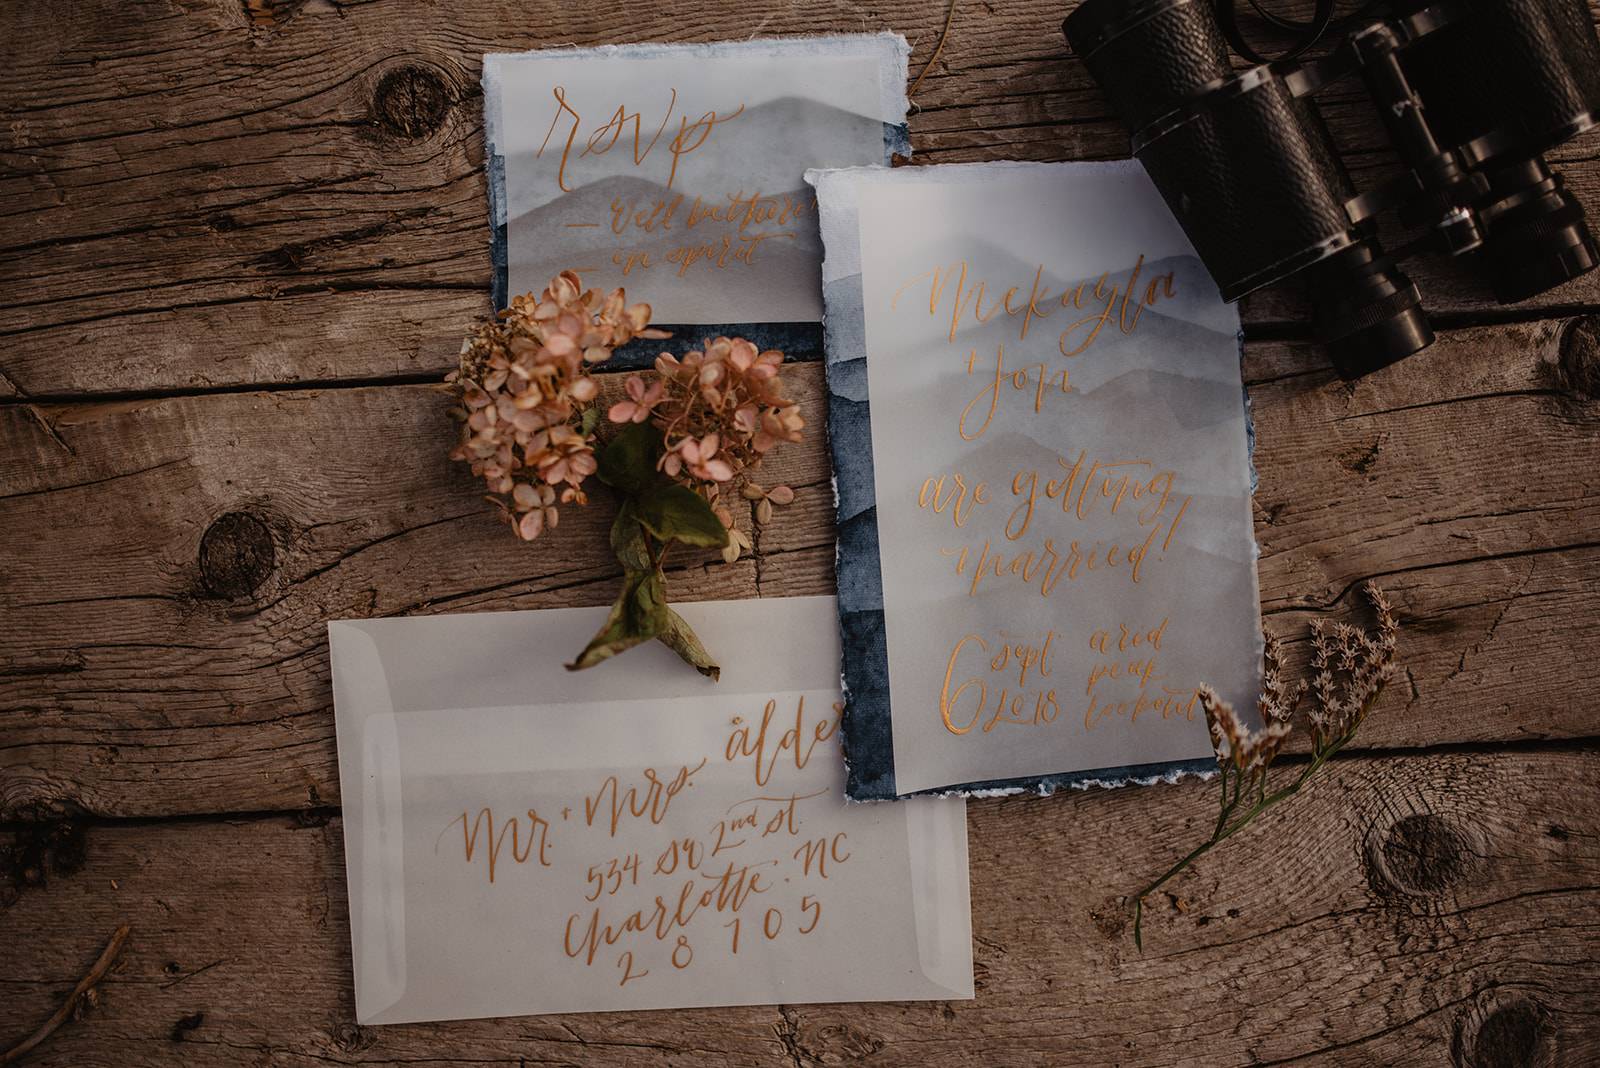 rsvp
— Will be there!
— in spirit
Mckayla
+ Jon
are getting
married!
6 sept 2018
arid
peak
lookout
Mr. + Mrs. ålde
534 SW 2nd St.
Charlotte, NC
28105